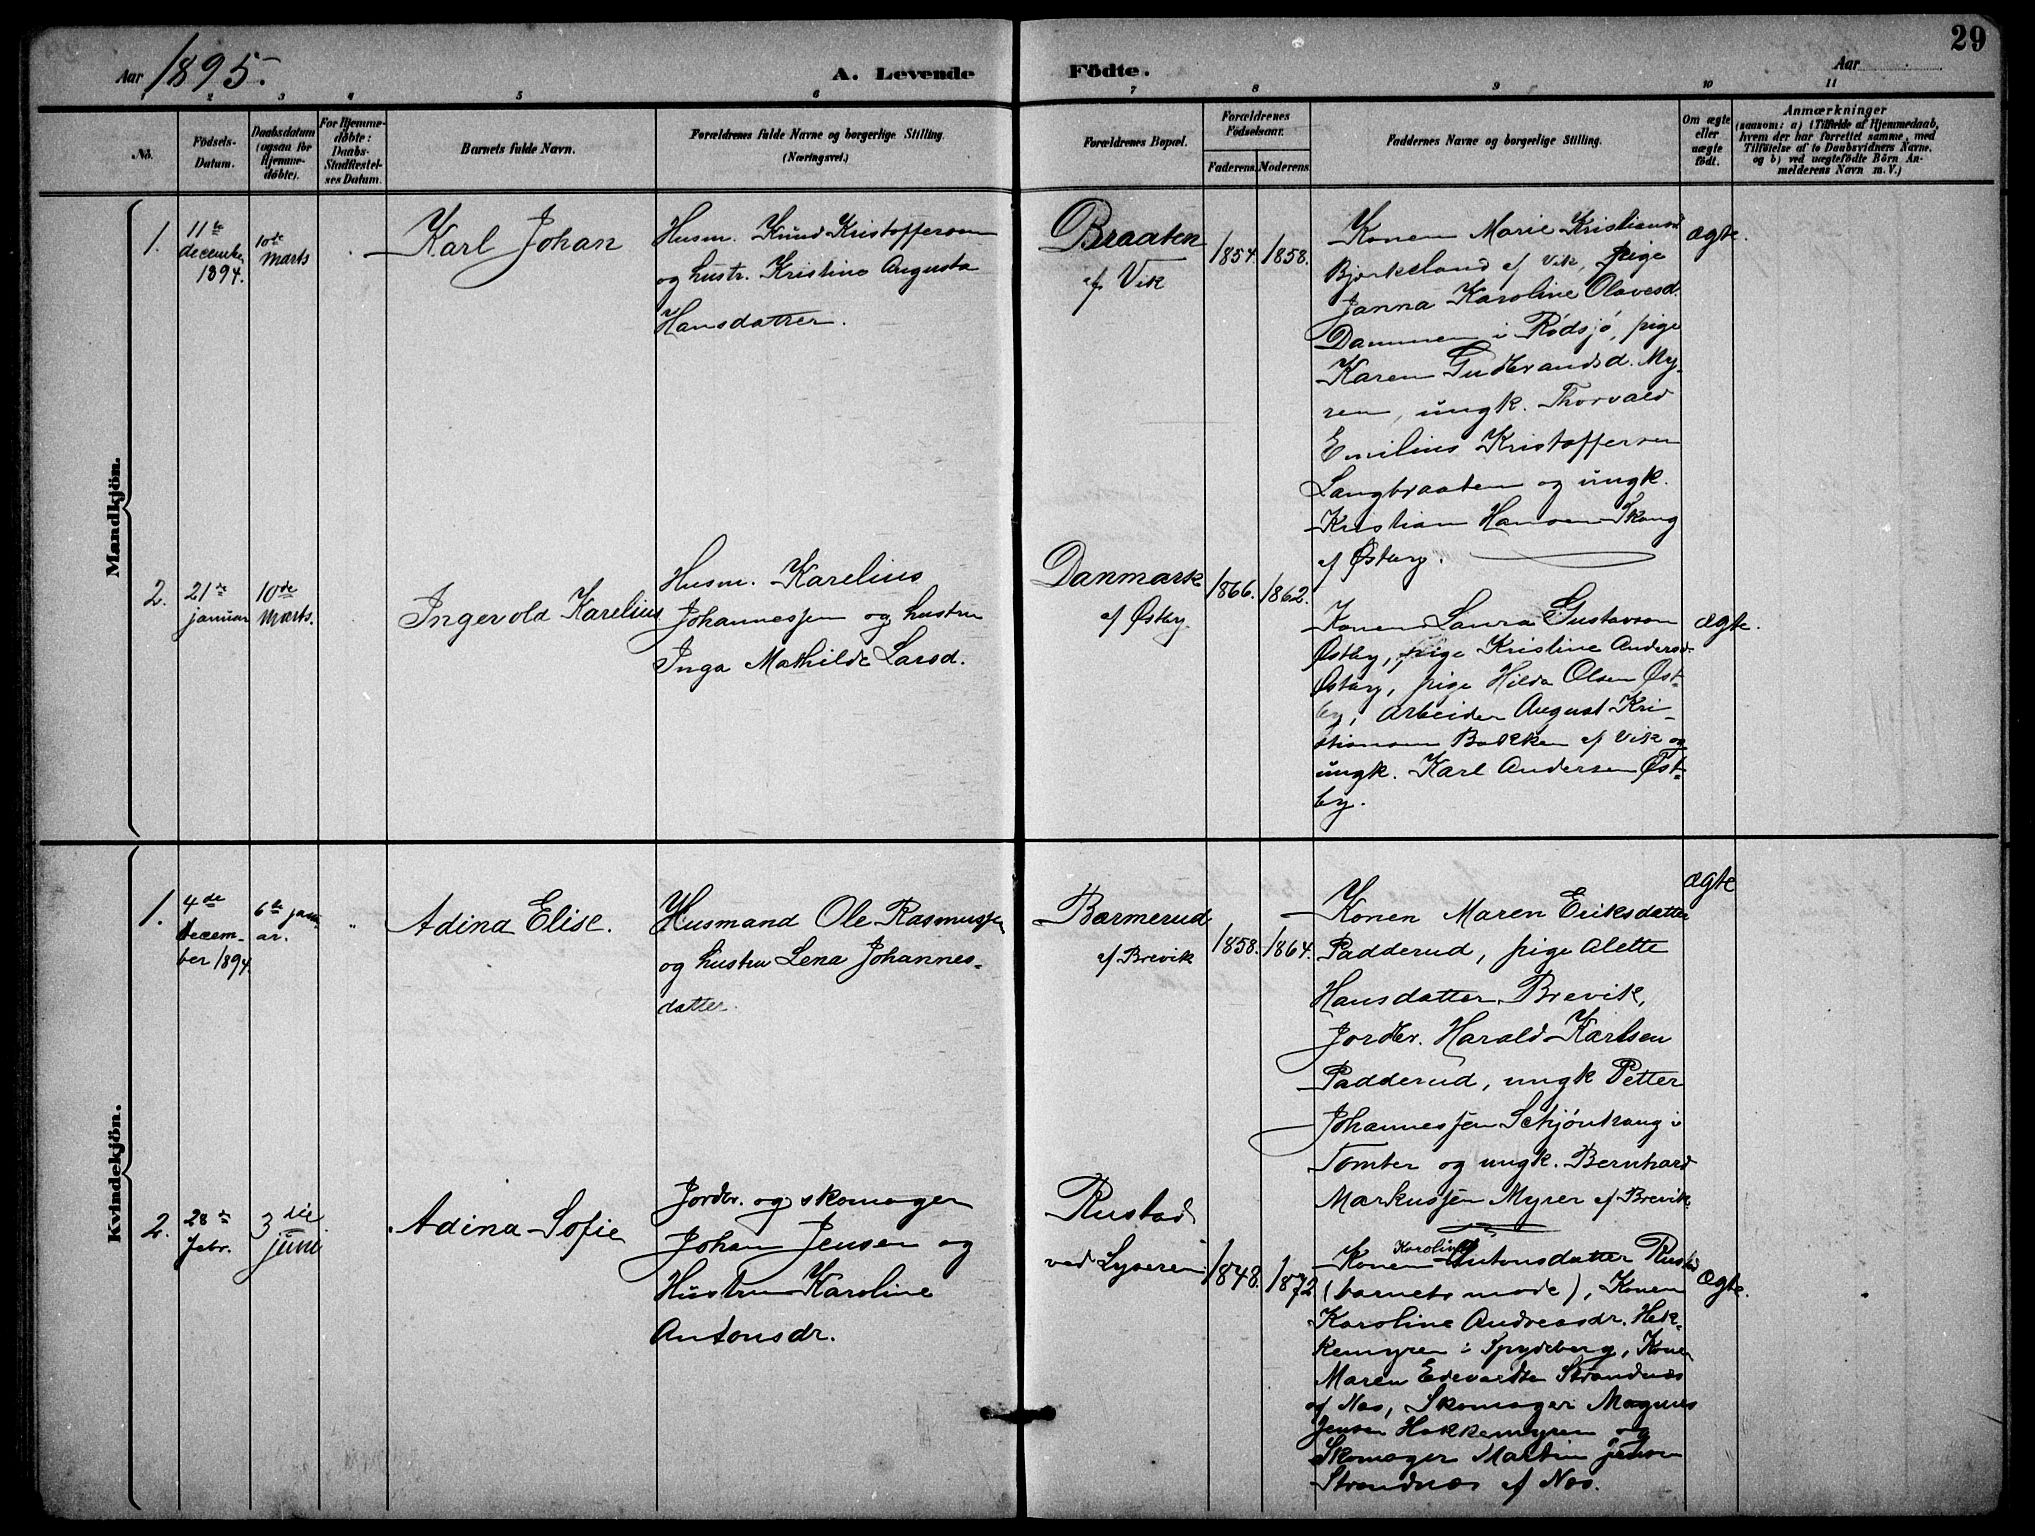 29
Aar 1895.
A. Levende Födte.
Aar
1 2 3 4 5 6 7 8 9 10 11
No.
Födsels-
Datum.
Daabsdatum
(ogsaa for
Hjemme-
döbte).
For Hjemme-
döbte:
Daabs-
Stadfæstel-
ses Datum.
Barnets fulde Navn.
Forældrenes fulde Navne og borgerlige Stilling.
(Næringsvei.)
Forældrenes Bopæl.
Forældrenes
Födselsaar.
Faderens. Moderens.
Faddernes Navne og borgerlige Stilling.
Om ægte
eller
uægte
födt.
Anmærkninger
(saasom: a) i Tilfælde af Hjemmedaab,
hvem der har forrettet samme, med
Tilföielse af to Daabsvidners Navne.
og b) ved uægtefödte Börn An-
melderens Navn m. V.)
Mandkjön.
1.
11te
december
1894.
10de
Marts
Karl Johan
Husm. Knud Kristoffersen
og hustr. Kristine Augusta
Hansdatter.
Braaten
af Vik
1854. 1858.
Konen Marie Kristiansd
Bjerkeland af Vik, pige
Janna Karoline Olavesd.
Dammen i Rödsjö, pige
Karen Gudbrandsd. My-
ren, ungk. Thorvald
Emilius Kristoffersen
Langbraaten og ungk.
Kristian Hansen Skoug
af Østby.
ægte.
2.
21de
januar
10de
Marts.
Ingevold Karelius
Husm. Karelius
Johannessen og hustru
Inga Mathilde Larsd.
Danmark
af Østby.
1866. 1862.
Konen Laura Gustavson
Østby, pige Kristine Andersd
Østby, pige Hilda Olsen Øst-
by, arbeider August Kri-
stiansen Bakken af Vik og
ungk. Karl Andersen Øst-
by.
ægte.
Kvindekjön.
1.
4de
decem-
ber 1894
6te janu
ar.
Adina Elise.
Husmand Ole Rasmussen
og hustru Lena Johannes-
datter.
Barmerud
af Brevik
1858. 1864.
Konen Maren Eriksdatter
Padderud, pige Alette
Hansdatter Brevik,
Jordbr. Harald Karlsen
Padderud, ungk Petter
Johannessen Schjönhaug i
Tomter og ungk. Bernhard
Markussen Myrer af Brevik
ægte
2.
28de
febr.
3die
juni
Adina Sofie
Jordbr. og skomager
Johan Jensen og
Hustru Karoline
Antonsdr.
Rustad
ved Lyseren
1848. 1872
Konen Karoline Antonsdatter Rustad
(barnets mode), Konen
Karoline Andreasdr. Hak-
kemyren i Spydeberg, Konen
Maren Edevardsen Strandnæs
af Nes, Skomager Magnus
Jensen Hakkemyren og
Skomager Martin Jensen
Strandnæs af Nes.
ægte.